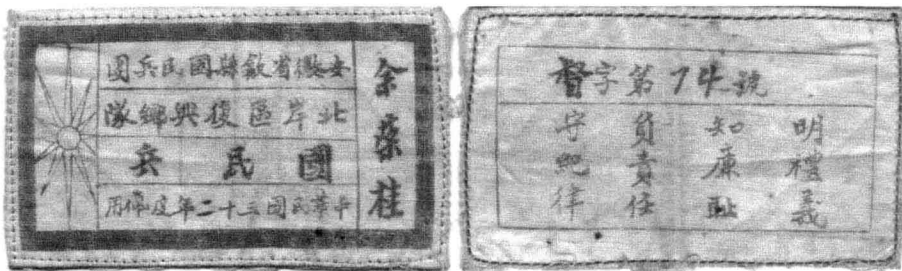 余榮桂
安徽省歙縣國民兵團
北岸區復興鄉隊
國民兵
中華民國三十二年度佩用
督字第74號
明禮義
知廉耻
負責任
守紀律